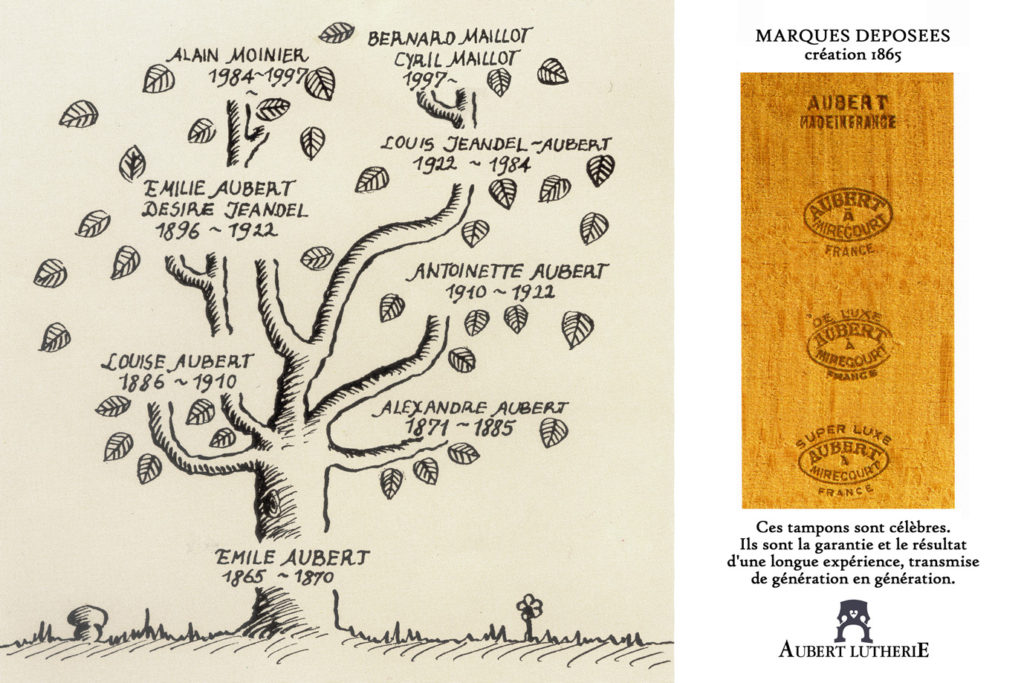 ALAIN MOINIER
1984~1997
BERNARD MAILLOT
CYRIL MAILLOT
1997~
LOUIS JEANDEL-AUBERT
1922 ~ 1984
EMILIE AUBERT
DESIRE JEANDEL
1896 ~ 1922
ANTOINETTE AUBERT
1910 ~ 1922
LOUISE AUBERT
1886 ~ 1910
ALEXANDRE AUBERT
1871 ~ 1885
EMILE AUBERT
1865 ~ 1870
MARQUES DEPOSEES
création 1865
AUBERT
MADE IN FRANCE
AUBERT
À
MIRECOURT
FRANCE
DE LUXE
AUBERT
À
MIRECOURT
FRANCE
SUPER LUXE
AUBERT
À
MIRECOURT
FRANCE
Ces tampons sont célèbres.
Ils sont la garantie et le résultat
d'une longue expérience, transmise
de génération en génération.
AUBERT LUTHERIE